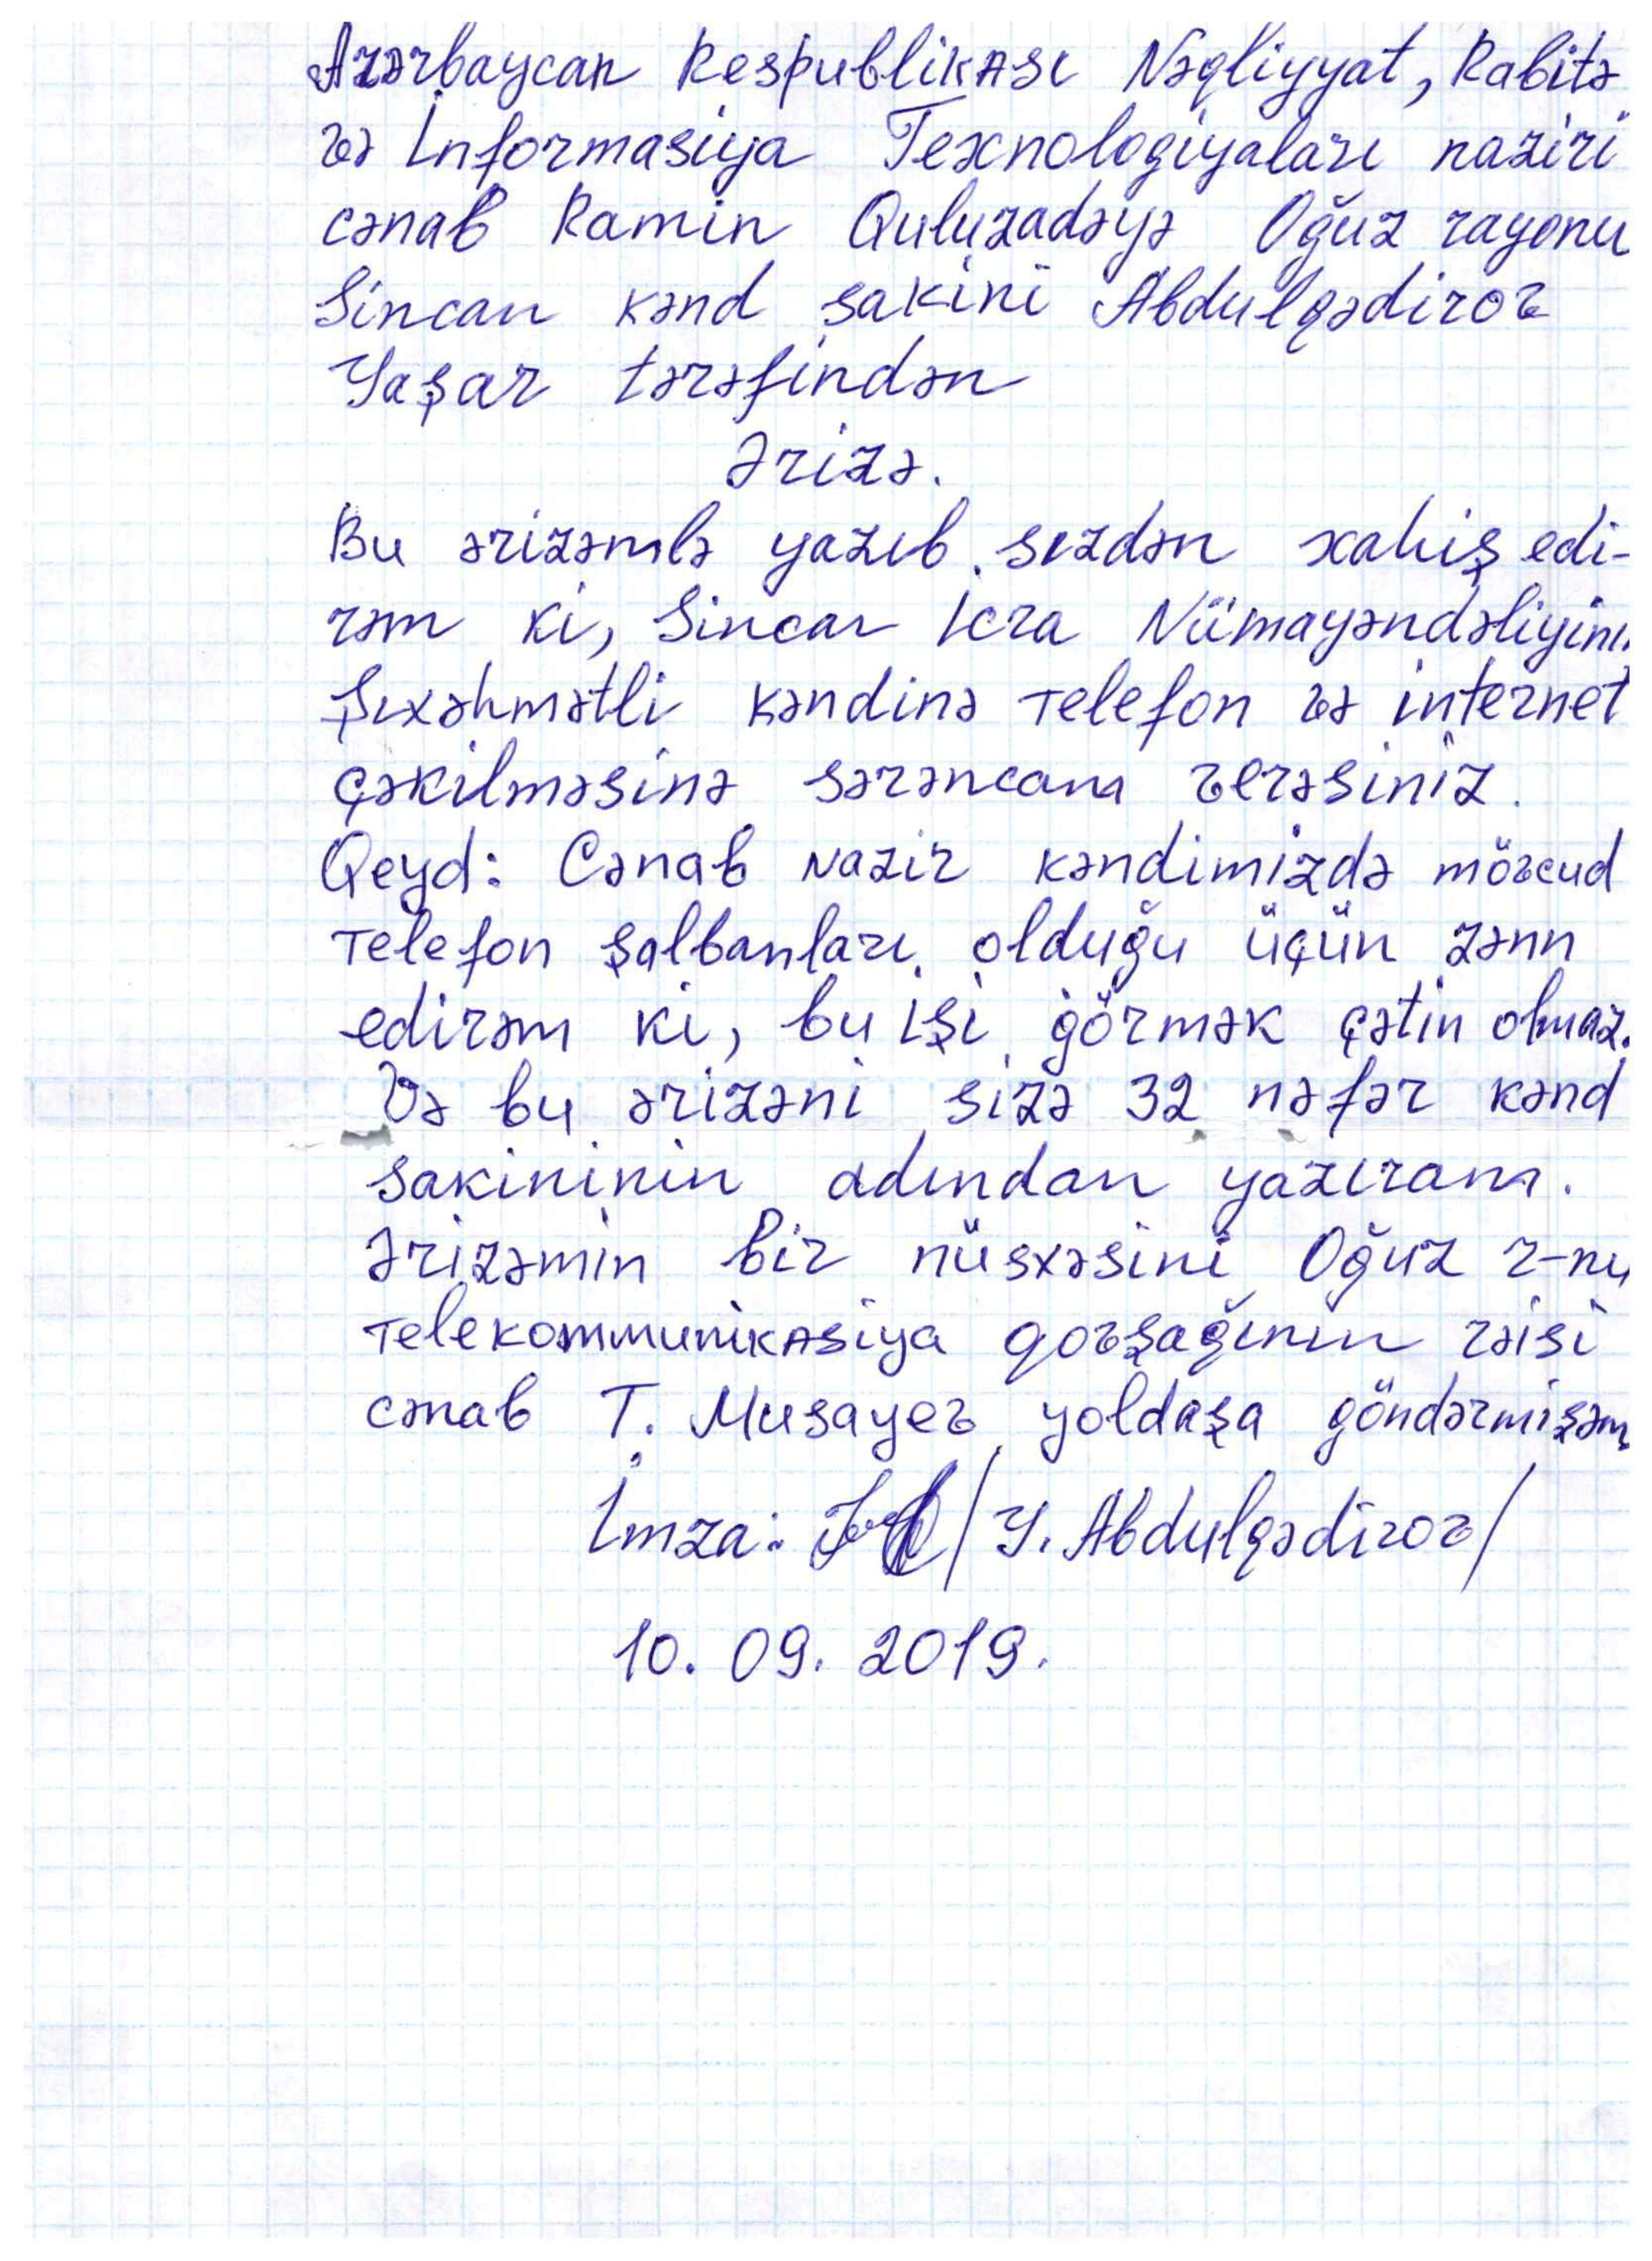 Azərbaycan Respublikası Nəqliyyat, Rabitə
və İnformasiya Texnologiyaları naziri
cənab Ramin Quluzadəyə Oğuz rayonu
Sincan kənd sakini Abdulqədirov
Yaşar tərəfindən
Ərizə.
Bu ərizəmlə yazıb sızdən xahiş edi-
rəm ki, Sincan İcra Nümayəndəliyini
Şıxəhmətli kəndinə telefon və internet
çəkilməsinə sərəncam verəsiniz.
Qeyd: Cənab Nazir kəndimizdə mövcud
telefon şalbanları olduğu üçün zənn
edirəm ki, bu işi görmək çətin olmaz.
Və bu ərizəni sizə 32 nəfər kənd
sakininin adından yazıram.
Ərizəmin bir nüsxəsini Oğuz r-nu
telekommunikasiya qovşağının rəisi
cənab T. Musayev yoldaşa göndərmişəm
İmza: /Y. Abdulqədirov/
10. 09. 2019.